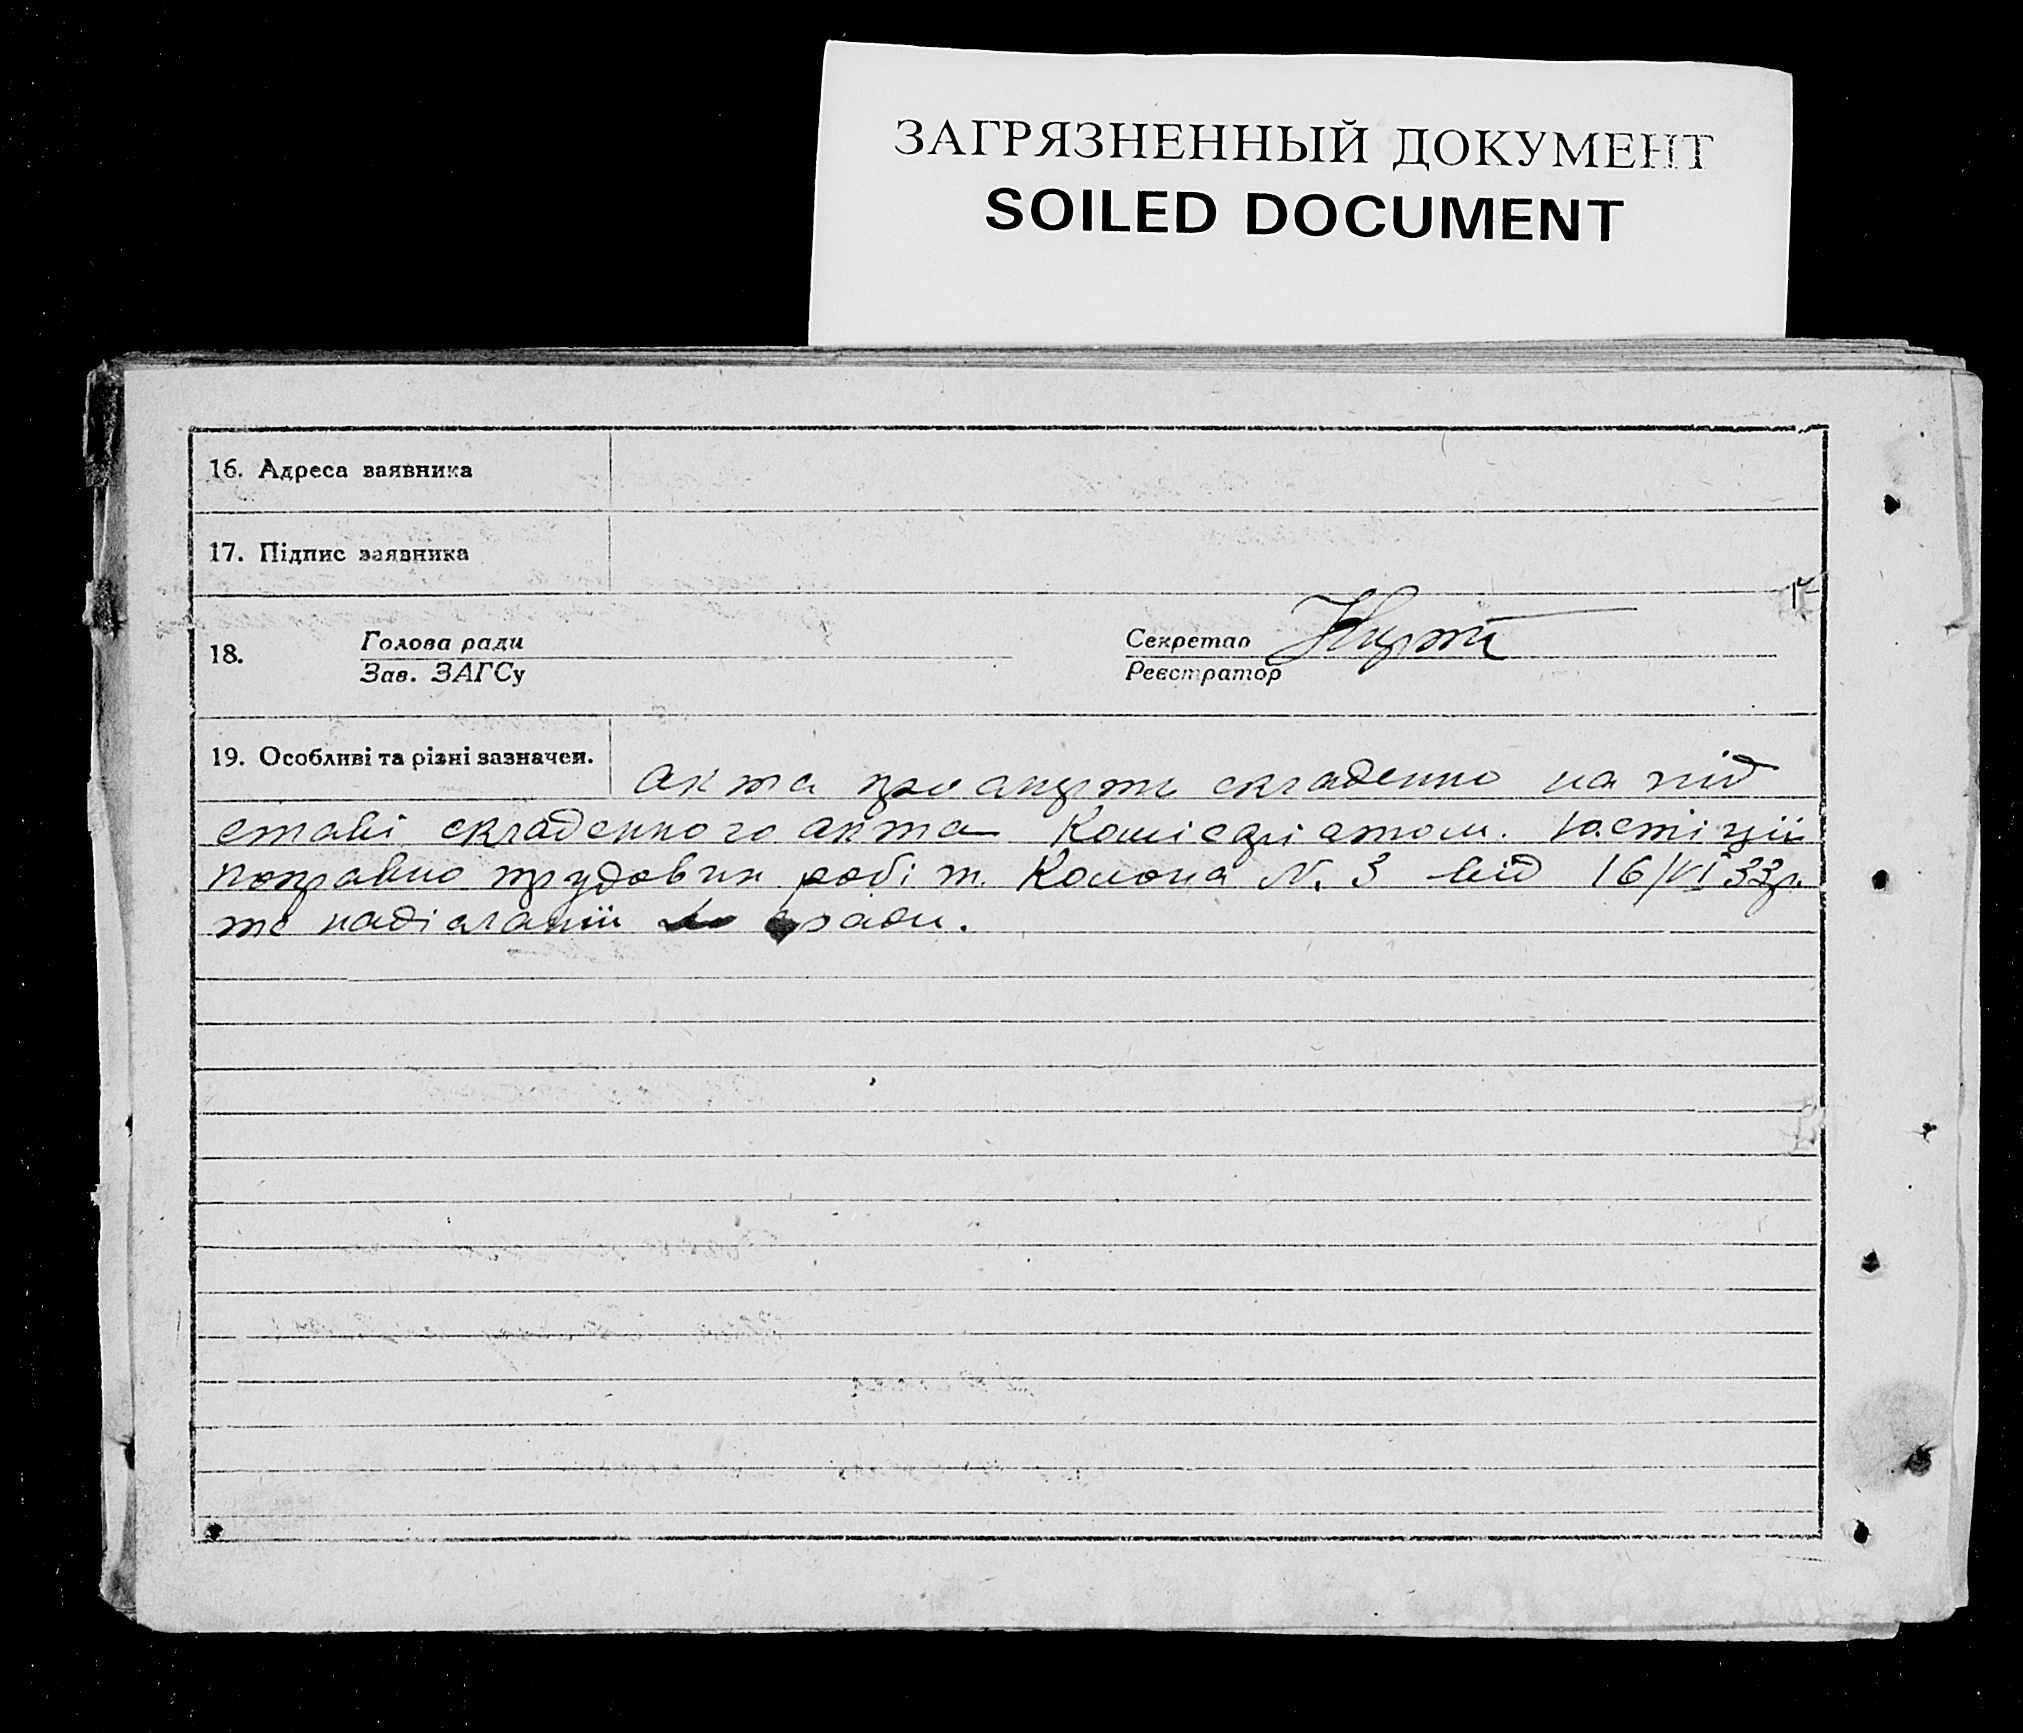 ЗАГРЯЗНЕННЫЙ ДОКУМЕНТ
SOILED DOCUMENT
16. Адреса заявника
17. Підпис заявника
18. Голова ради
Зав. ЗАГСу
Секретар
Реєстратор
19. Особливі та різні зазначен.
акта про смерть складенно на під
ставі складенного акта Комісаріатом. Юстіції
поправно трудових робіт. Колона N. 3 від 16/VI 33р.
та надісланий ради.